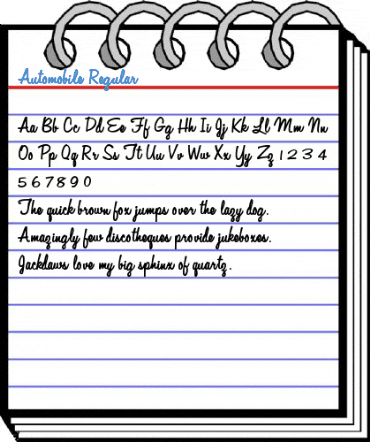 Automobile Regular
Aa Bb Cc Dd Ee Ff Gg Hh Ii Jj Kk Ll Mm Nn
Oo Pp Qq Rr Ss Tt Uu Vv Ww Xx Yy Zz 1 2 3 4
5 6 7 8 9 0
The quick brown fox jumps over the lazy dog.
Amazingly few discotheques provide jukeboxes.
Jackdaws love my big sphinx of quartz.